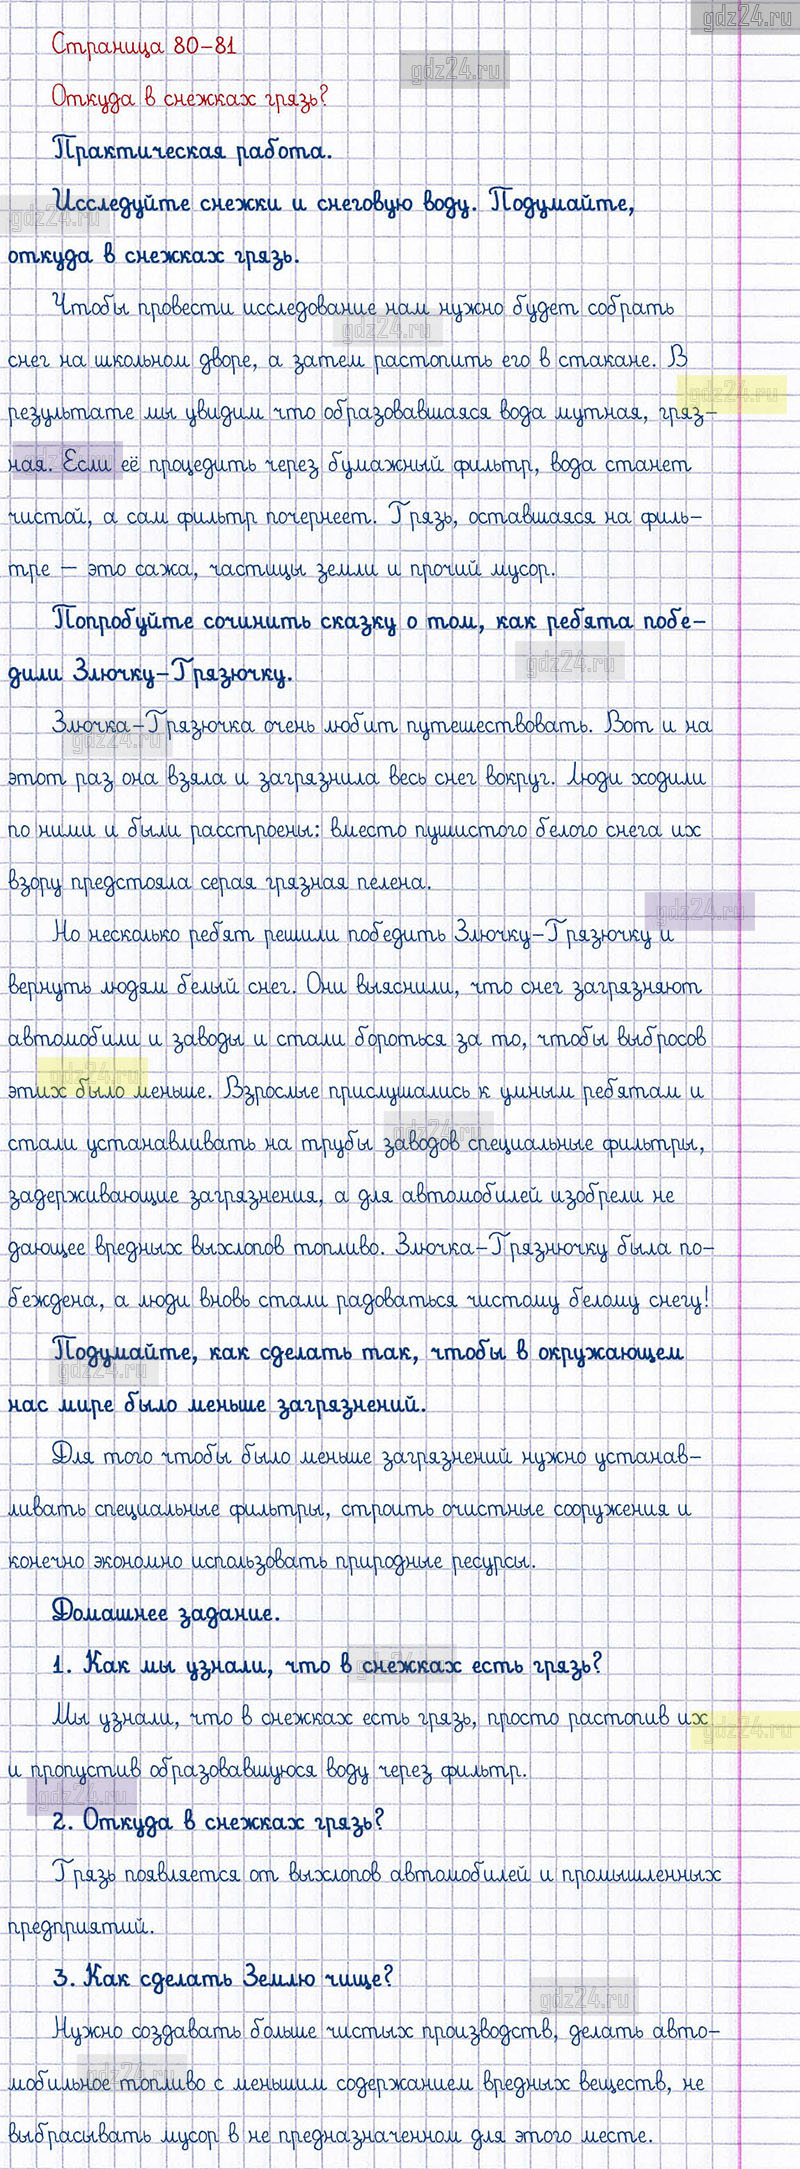 gdz24.ru
Страница 80-81
gdz24.ru
Откуда в снежках грязь?
Практическая работа.
Исследуйте снежки и снеговую воду. Подумайте,
gdz24.ru
откуда в снежках грязь.
Чтобы провести исследование нам нужно будет собрать
gdz24.ru
снег на школьном дворе, а затем растопить его в стакане. В
gdz24.ru
результате мы увидим что образовавшаяся вода мутная, гряз-
ная. Если её процедить через бумажный фильтр, вода станет
gdz24.ru
чистой, а сам фильтр почернеет. Грязь, оставшаяся на филь-
тре — это сажа, частицы земли и прочий мусор.
Попробуйте сочинить сказку о том, как ребята побе-
gdz24.ru
дили Злючку-Грязючку.
Злючка-Грязючка очень любит путешествовать. Вот и на
gdz24.ru
этот раз она взяла и загрязнила весь снег вокруг. Люди ходили
по ними и были расстроены: вместо пушистого белого снега их
взору предстояла серая грязная пелена.
gdz24.ru
Но несколько ребят решили победить Злючку-Грязючку и
вернуть людям белый снег. Они выяснили, что снег загрязняют
автомобили и заводы и стали бороться за то, чтобы выбросов
gdz24.ru
этих было меньше. Взрослые прислушались к умным ребятам и
gdz24.ru
стали устанавливать на трубы заводов специальные фильтры,
задерживающие загрязнения, а для автомобилей изобрели не
дающее вредных выхлопов топливо. Злючка-Грязнючку была по-
беждена, а люди вновь стали радоваться чистому белому снегу!
Подумайте, как сделать так, чтобы в окружающем
gdz24.ru
нас мире было меньше загрязнений.
Для того чтобы было меньше загрязнений нужно устанав-
ливать специальные фильтры, строить очистные сооружения и
конечно экономно использовать природные ресурсы.
Домашнее задание.
1. Как мы узнали, что в снежках есть грязь?
gdz24.ru
Мы узнали, что в снежках есть грязь, просто растопив их
gdz24.ru
и пропустив образовавшуюся воду через фильтр.
gdz24.ru
2. Откуда в снежках грязь?
Грязь появляется от выхлопов автомобилей и промышленных
предприятий.
3. Как сделать Землю чище?
gdz24.ru
Нужно создавать больше чистых производств, делать авто-
gdz24.ru
мобильное топливо с меньшим содержанием вредных веществ, не
выбрасывать мусор в не предназначенном для этого месте.